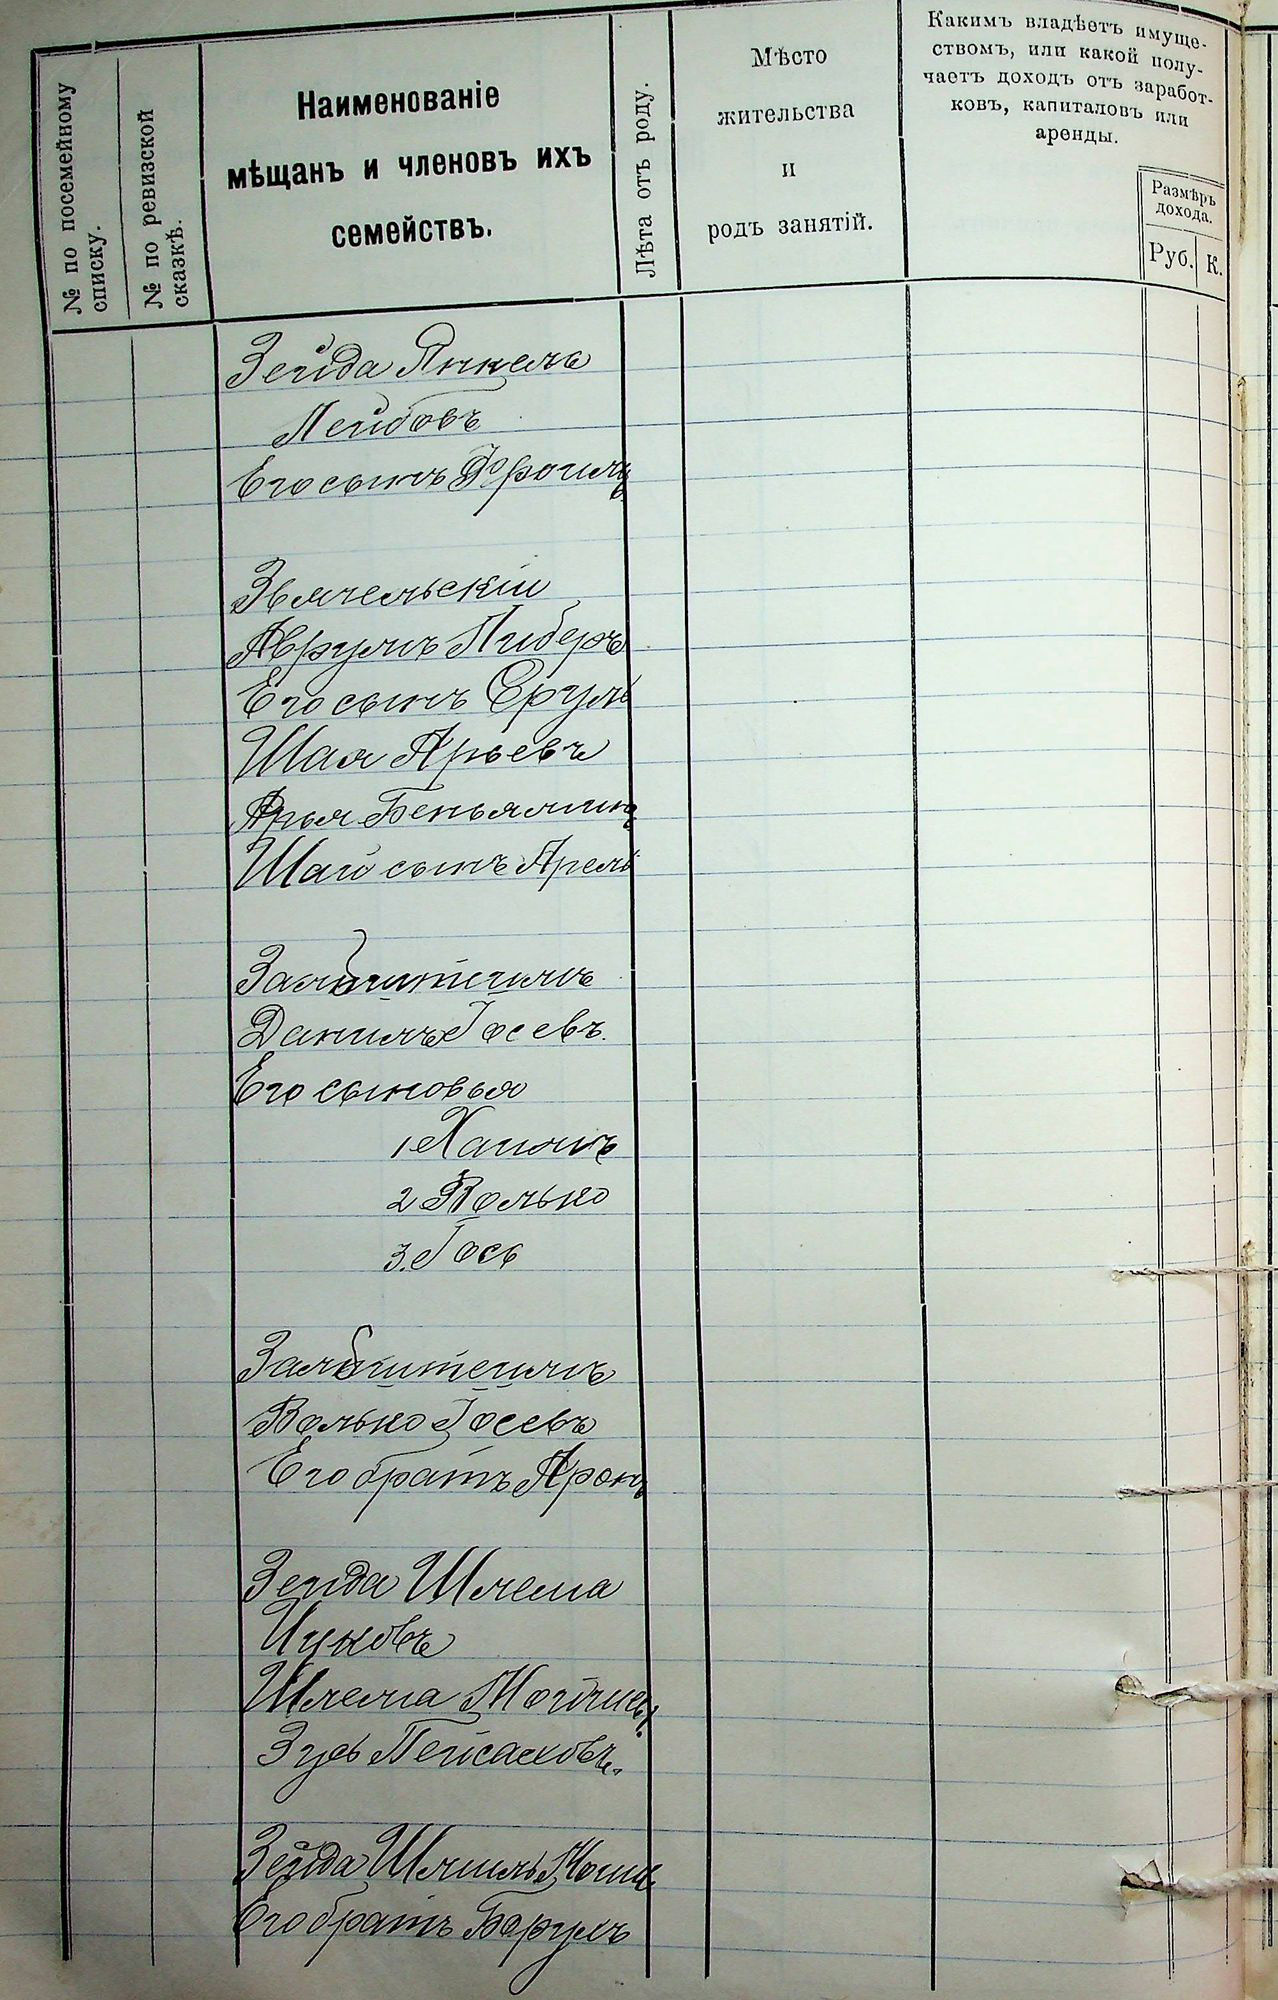 № по посемейному
списку.
№ по ревизской
сказкѣ.
Наименованіе
мѣщанъ и членовъ ихъ
семействъ.
Лѣта отъ роду.
Мѣсто
жительства
и
родъ занятій.
Какимъ владѣетъ имуще-
ствомъ, или какой полу-
чаетъ доходъ отъ заработ-
ковъ, капиталовъ или
аренды.
Размѣръ
дохода.
Руб.
К.
Зейда Янкель
Лейбовъ
Его сынъ
Звягельскій
Аврумъ Либеръ
Его сынъ Сруль
Шая Арьевъ
Арья Беньяминъ
Шаи сынъ Арель
Зальцштейнъ
Данилъ Іосевъ.
Его сыновья
1 Хаимъ
2 Волько
3. Іось
Зальцштейнъ
Волько Іосевъ
Его братъ Аронъ
Зейда Шлема
Ицковъ
Шлема
Зусь Пейсаховъ.
Зейда
Его братъ Борухъ